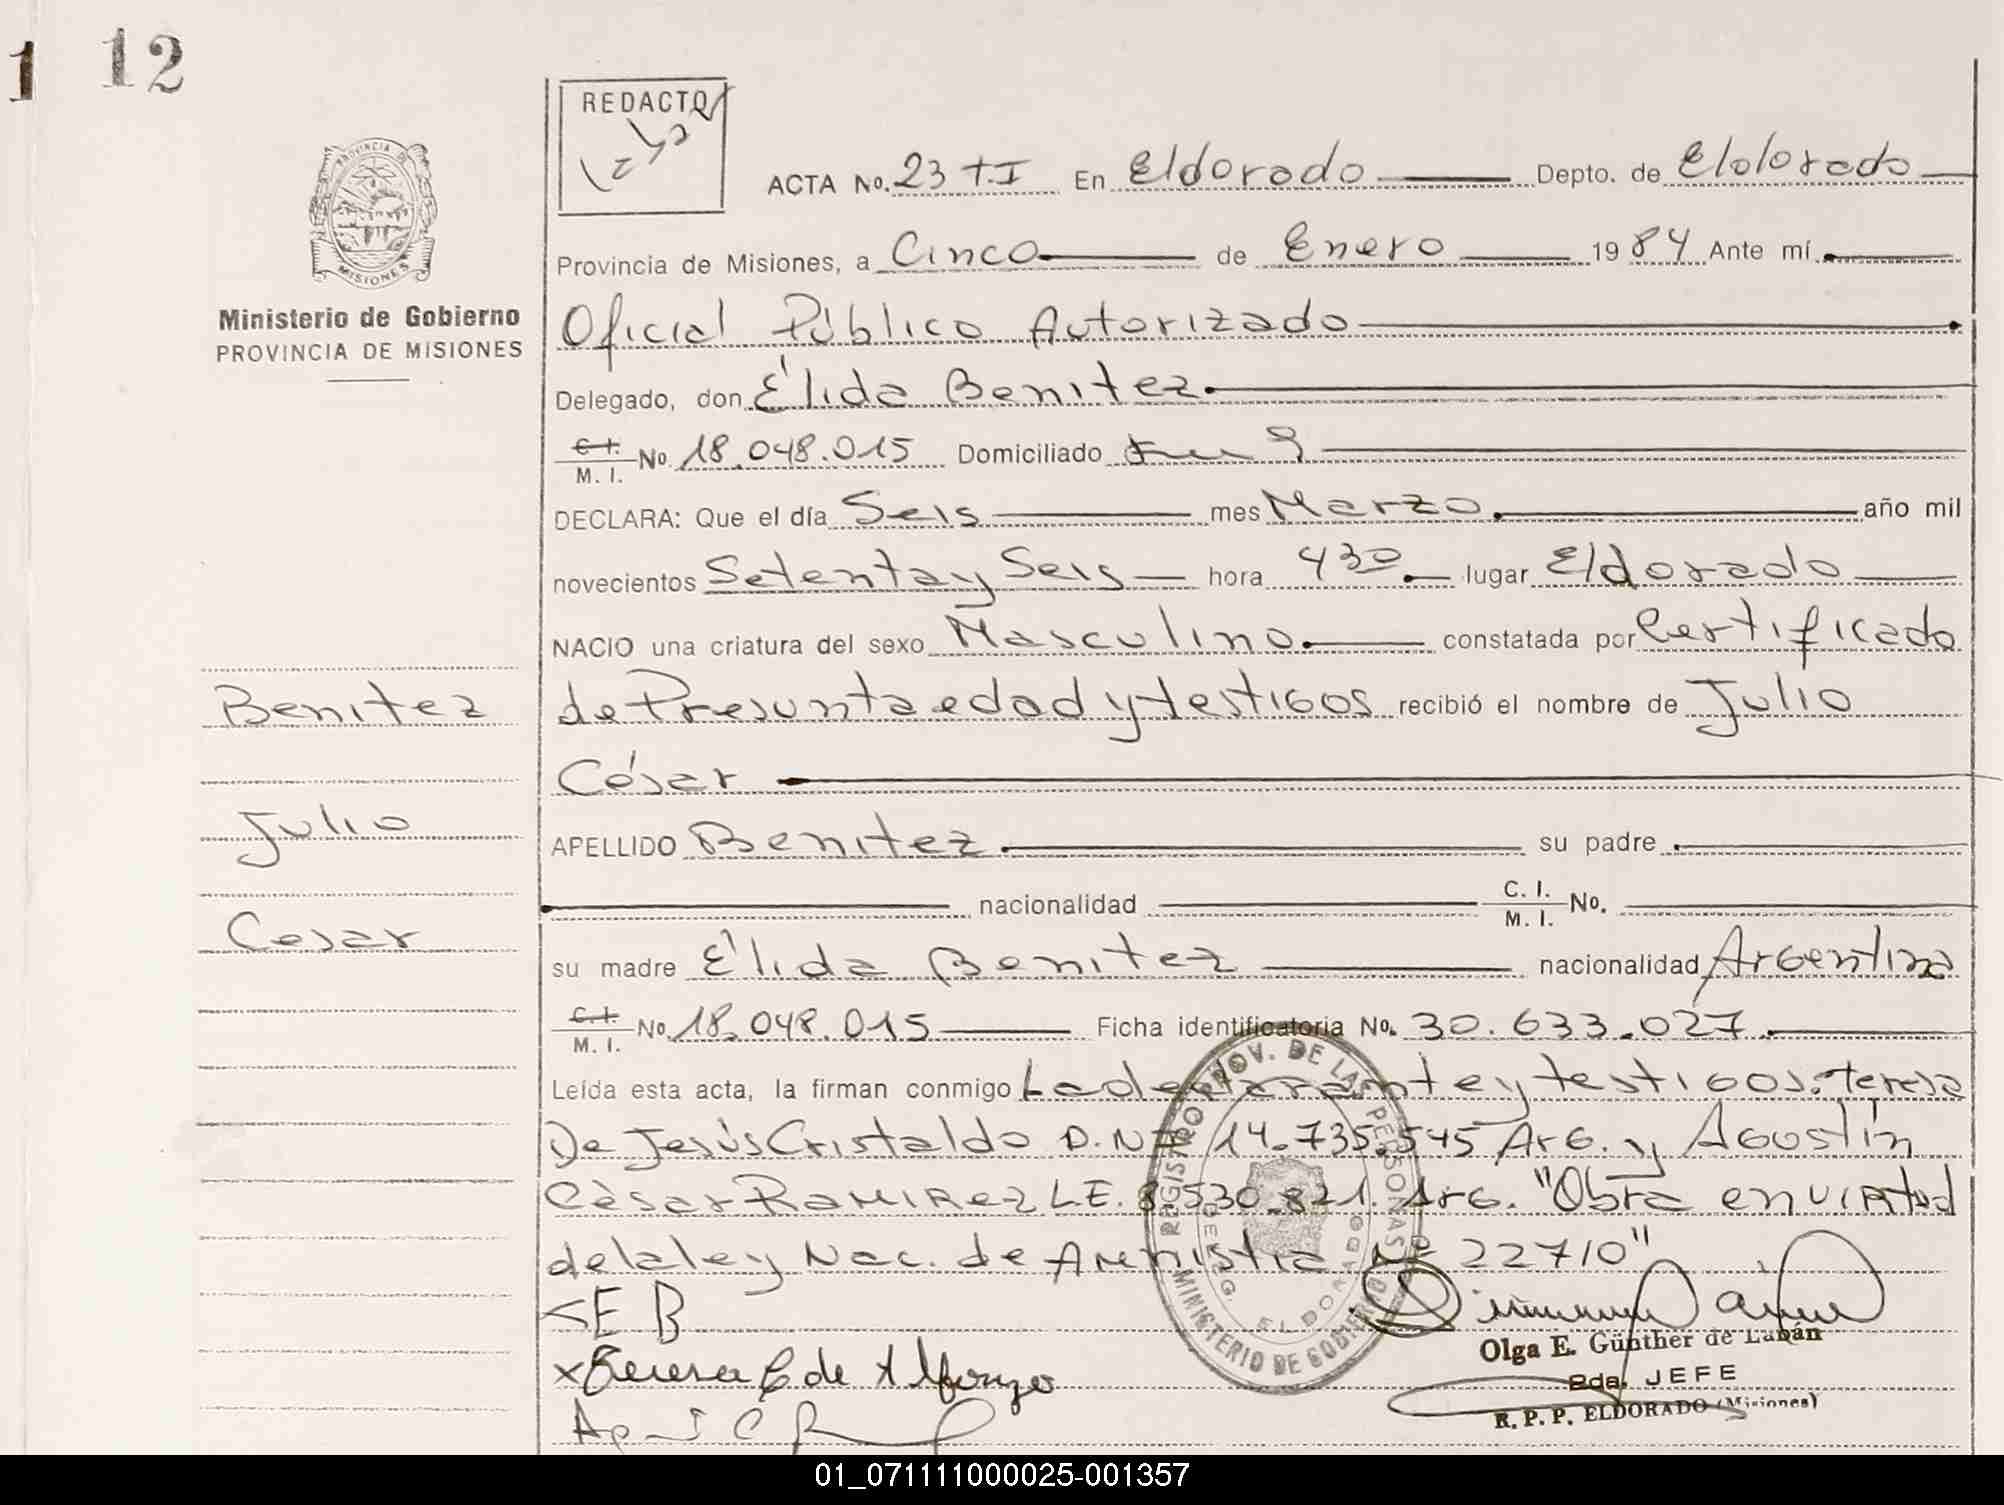 1 12
REDACTO
ACTA No. 23 T.I En Eldorado Depto. de Eldorado
Provincia de Misiones, a Cinco de Enero 1984 Ante mí
PROVINCIA DE MISIONES
Ministerio de Gobierno
PROVINCIA DE MISIONES
Oficial Público Autorizado
Delegado, don Élida Benitez
C.I. M.I. No 18.048.015 Domiciliado Km 9
DECLARA: Que el día Seis mes Marzo año mil
novecientos Setenta y Seis hora 4 30 lugar Eldorado
NACIO una criatura del sexo Masculino constatada por Certificado
de Presunta edad y testigos recibió el nombre de Julio
César
APELLIDO Benitez su padre
nacionalidad C.I. M.I. No.
su madre Élida Benitez nacionalidad Argentina
C.I. M.I. No. 18.048.015 Ficha identificatoria No. 30.633.027
Leída esta acta, la firman conmigo La declarante y testigos: Teresa
De Jesús Cristaldo D.N.I. 14.735.545 Arg. y Agustín
César Ramirez L.E. 8.530.821. Arg. "Obra en virtud
de la ley Nac. de Amnistia Nº 22710"
Benitez
Julio
Cesar
E B
x Teresa C de Alfonzo
REGISTRO PROV. DE LAS PERSONAS
MINISTERIO DE GOBIERNO
DELEG. ELDORADO
Olga E. Günther de Labán
2da. JEFE
R. P. P. ELDORADO (Misiones)
01_071111000025-001357